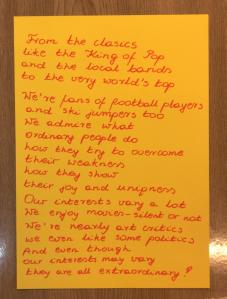 From the clasics
like the King of Pop
and the local bands
to the very world's top
We're fans of football players
and ski jumpers too
We admire what
ordinary people do
how they try to overcome
their weakness
how they show
their joy and unipness
Our interests vary a lot
We enjoy movies-silent or not
We're nearly art critics
we even like some politics
And even though
our interests may vary
they are all extraordinary!